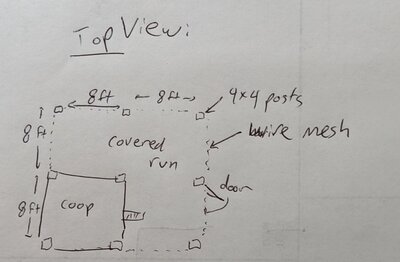 Top View:
8ft 8ft
4x4 posts
8ft
covered run
wire mesh
8ft
coop
door